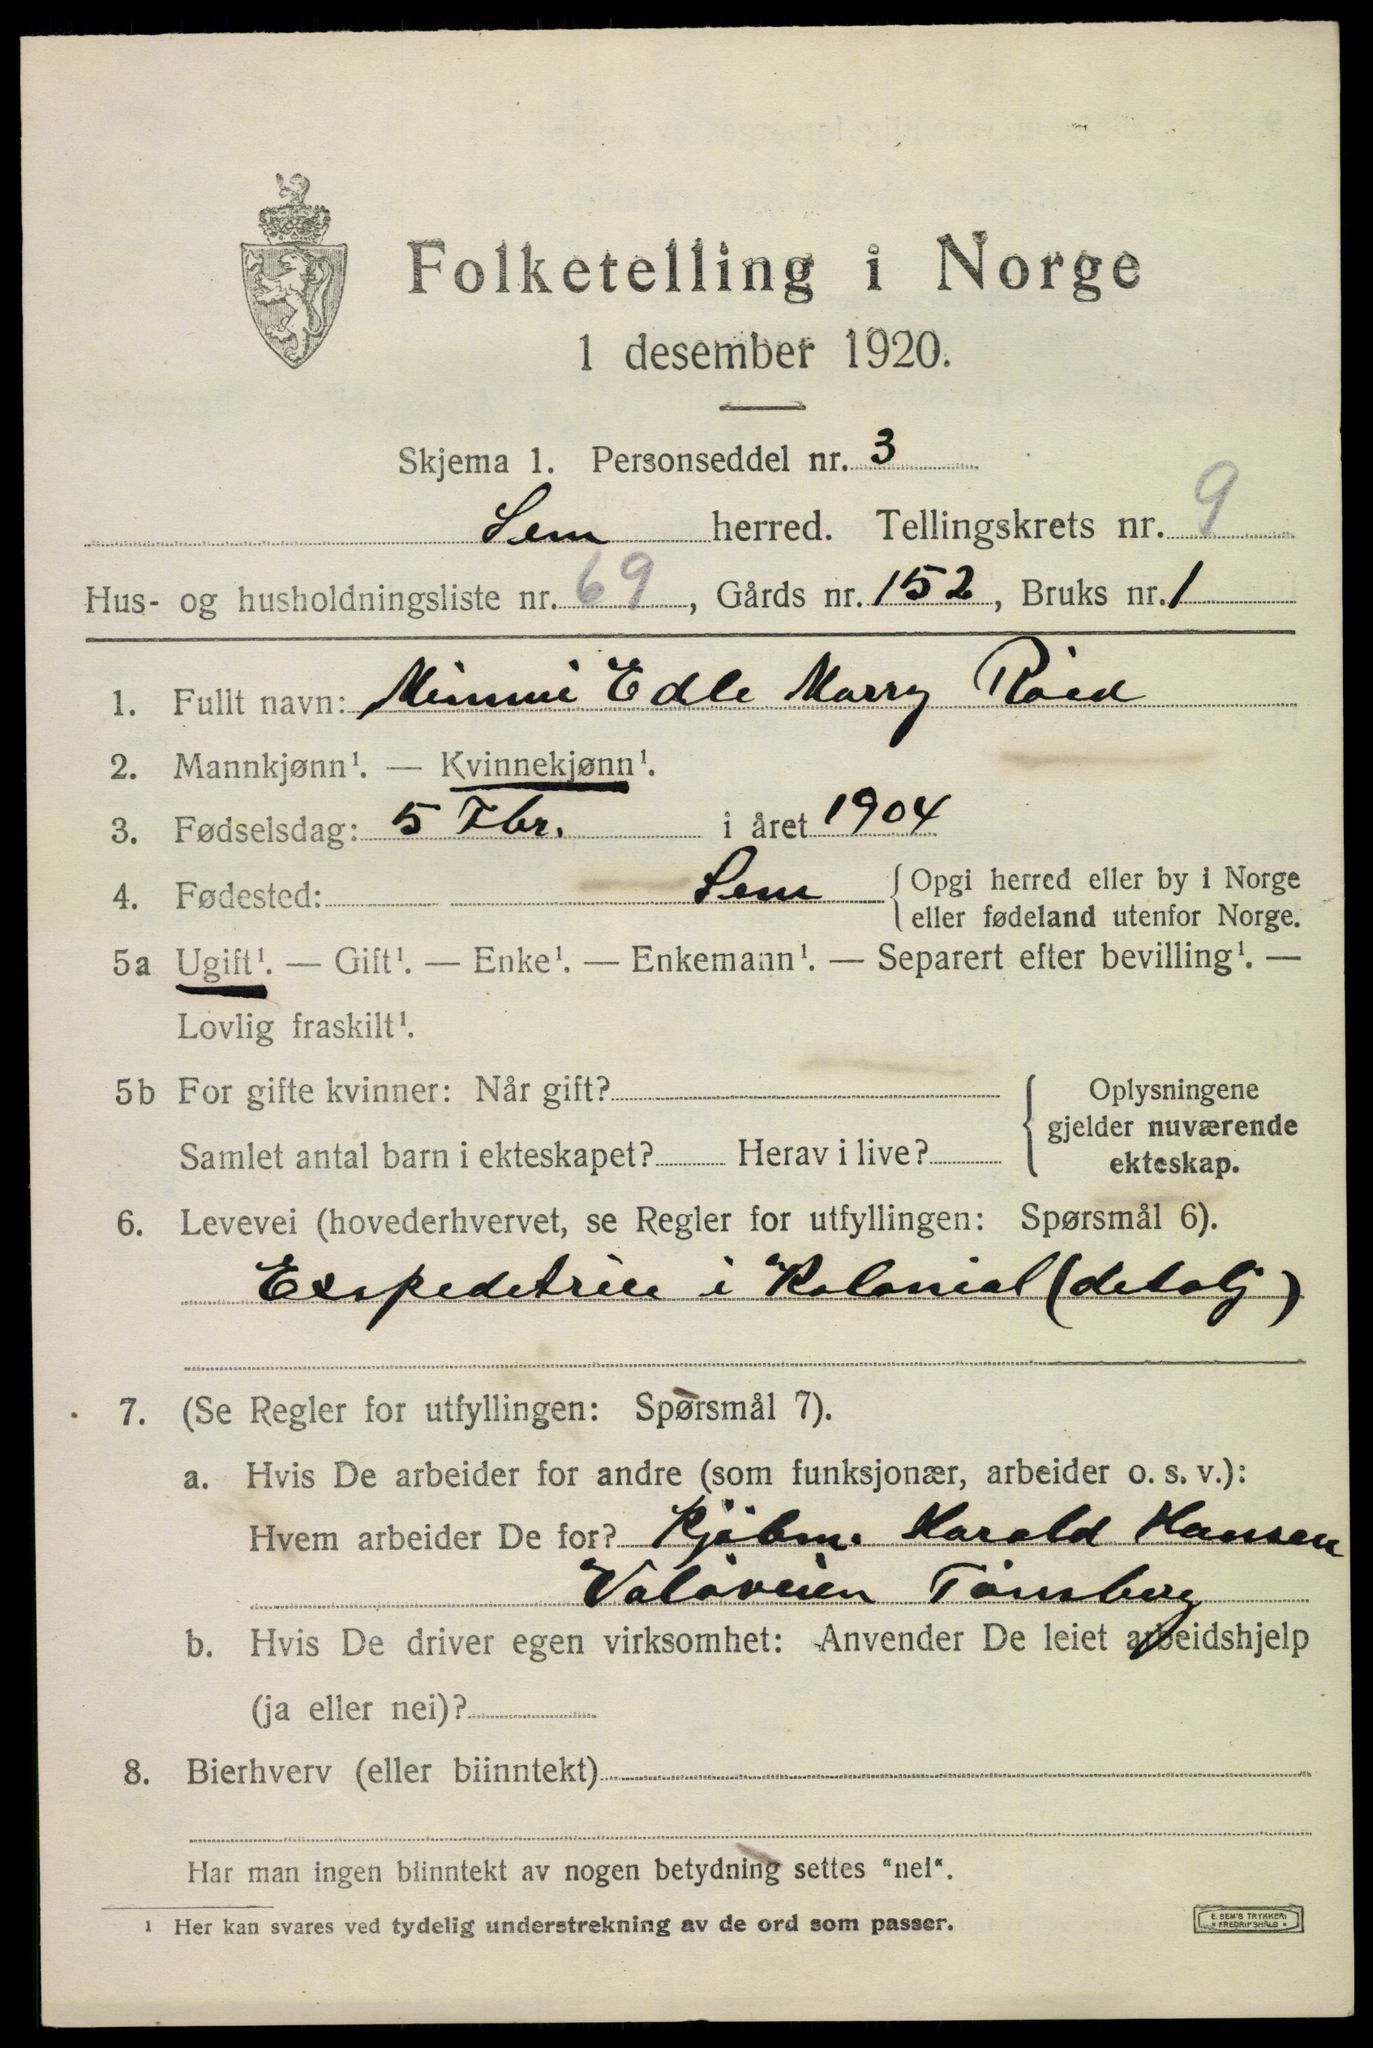 Folketelling i Norge
1 desember 1920.
Skjema 1. Personseddel nr. 3
Sem herred. Tellingskrets nr. 9
Hus- og husholdningsliste nr. 69, Gårds nr. 152, Bruks nr. 1
1. Fullt navn: Mimmi Edle Marry Röed
2. Mannkjønn¹. — Kvinnekjønn¹.
3. Fødselsdag: 5 Fbr. i året 1904
4. Fødested: Sem { Opgi herred eller by i Norge
eller fødeland utenfor Norge.
5a Ugift¹. — Gift¹. — Enke¹. — Enkemann¹. — Separert efter bevilling¹. —
Lovlig fraskilt¹.
5b For gifte kvinner: Når gift?
Samlet antal barn i ekteskapet? Herav i live?
Oplysningene
gjelder nuværende
ekteskap.
6. Levevei (hovederhvervet, se Regler for utfyllingen: Spørsmål 6).
Exspeditrice i Kolonial (detalj)
7. (Se Regler for utfyllingen: Spørsmål 7).
a. Hvis De arbeider for andre (som funksjonær, arbeider o. s. v.):
Hvem arbeider De for? Kjöbm. Harald Hansen
Valöveien Tönsberg
b. Hvis De driver egen virksomhet: Anvender De leiet arbeidshjelp
(ja eller nei)?
8. Bierhverv (eller biinntekt)
Har man ingen biinntekt av nogen betydning settes "nei".
¹ Her kan svares ved tydelig understrekning av de ord som passer.
E. SEM'S TRYKKERI
FREDRIKSHALD